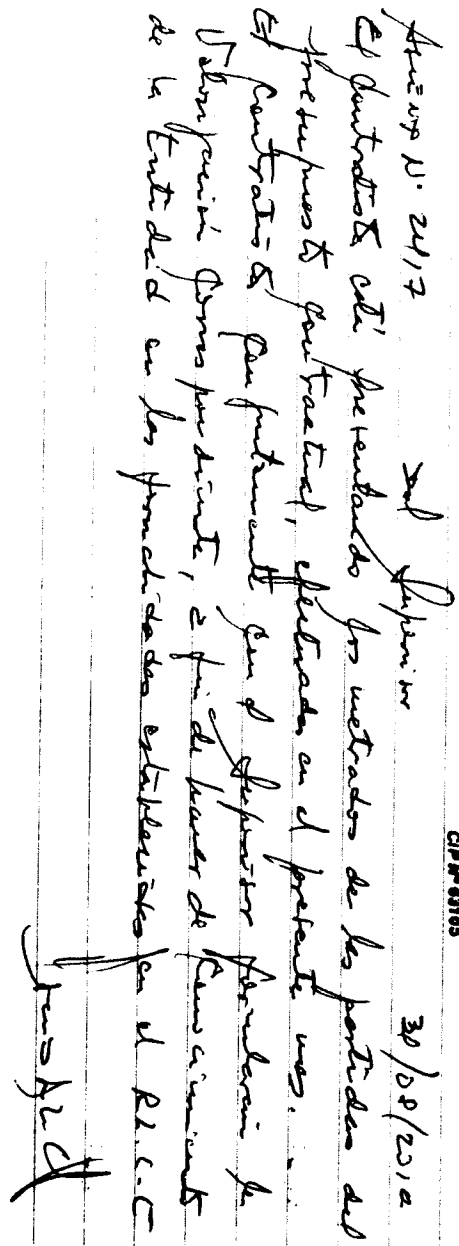 CIP Nº 63703
Asiento N° 2417 del Supervisor 30/08/2010
El Contratista está presentando los metrados de las partidas del
presupuesto contractual, efectuadas en el presente mes.
El Contratista conjuntamente con el Supervisor formularán la
Valorización correspondiente, a fin de poner de conocimiento
de la Entidad en las formalidades establecidas en el R.L.C.E